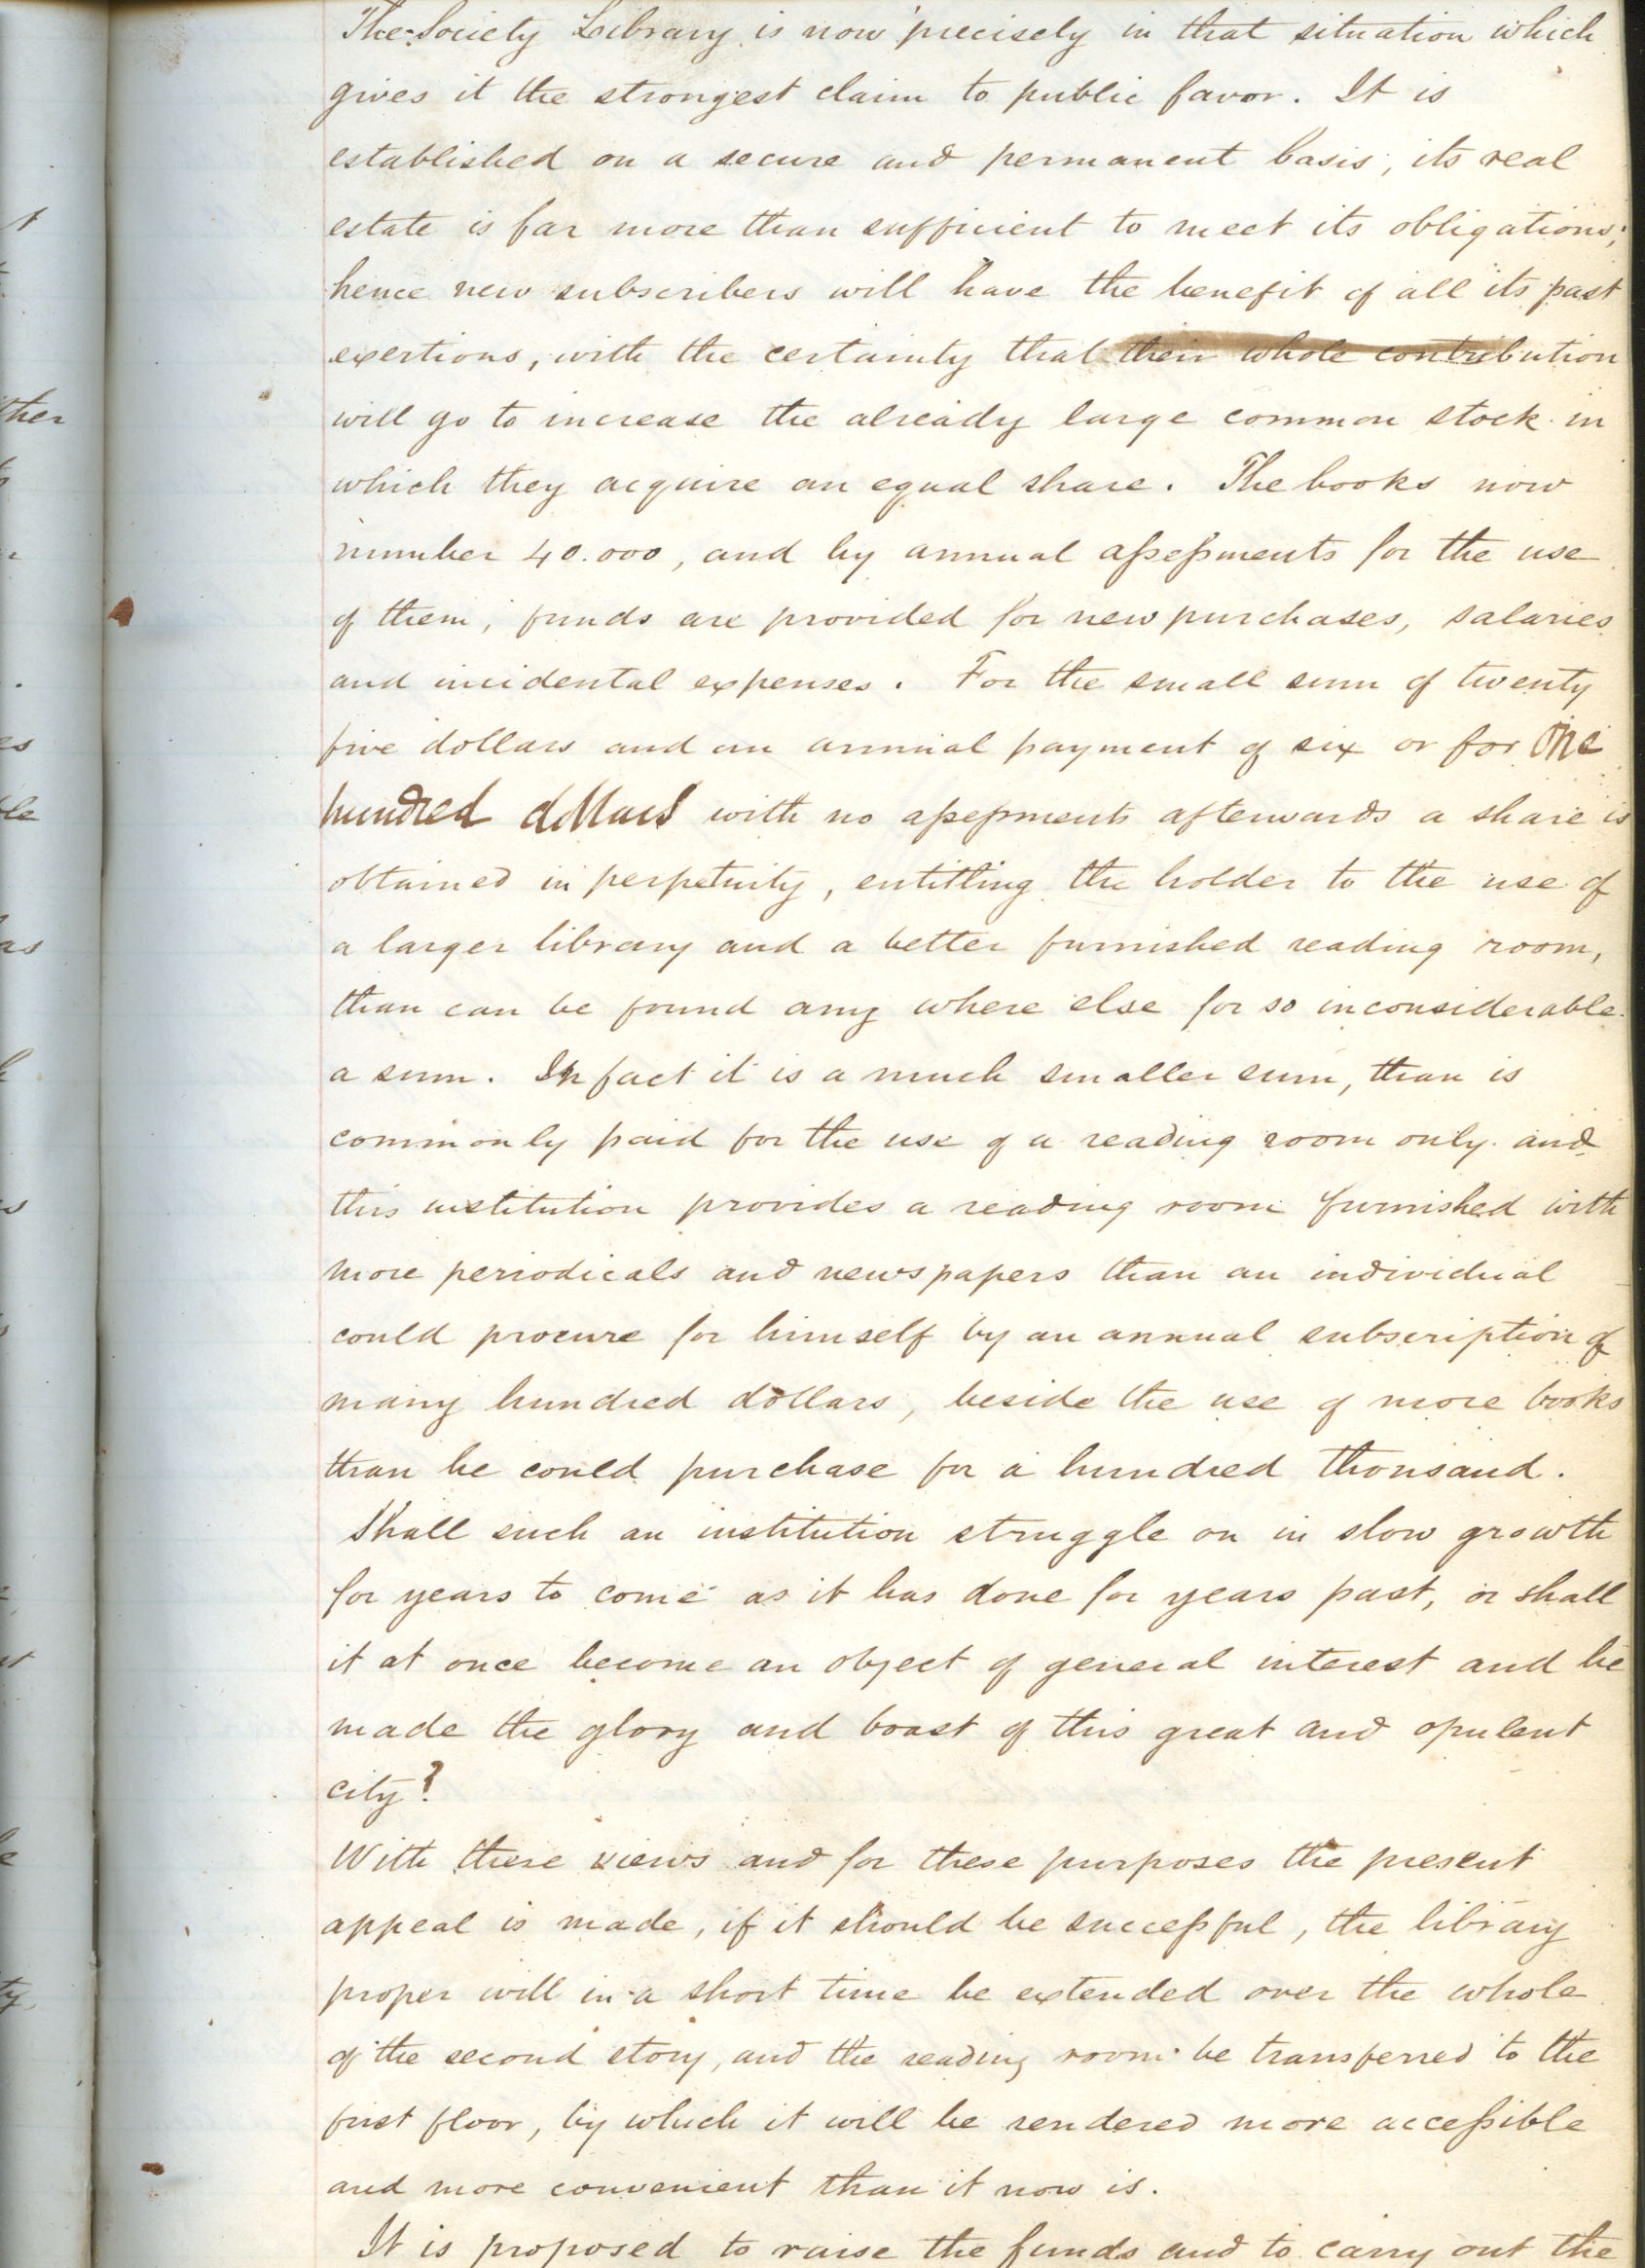 The Society Library is now precisely in that situation which
gives it the strongest claim to public favor. It is
established on a secure and permanent basis, its real
estate is far more than sufficient to meet its obligations;
hence new subscribers will have the benefit of all its past
exertions, with the certainty that their whole contribution
will go to increase the already large common stock in
which they acquire an equal share. The books now
number 40.000, and by annual assessments for the use
of them, funds are provided for new purchases, salaries
and incidental expenses. For the small sum of twenty
five dollars and an annual payment of six or for One
hundred dollars with no assessments afterwards a share is
obtained in perpetuity, entitling the holder to the use of
a larger library and a better furnished reading room,
than can be found any where else for so inconsiderable
a sum. In fact it is a much smaller sum, than is
commonly paid for the use of a reading room only and
this institution provides a reading room furnished with
more periodicals and newspapers than an individual
could procure for himself by an annual subscription of
many hundred dollars, beside the use of more books
than he could purchase for a hundred thousand.
Shall such an institution struggle on in slow growth
for years to come as it has done for years past, or shall
it at once become an object of general interest and be
made the glory and boast of this great and opulent
city?
With these views and for these purposes the present
appeal is made, if it should be successful, the library
proper will in a short time be extended over the whole
of the second story, and the reading room be transferred to the
first floor, by which it will be rendered more accessible
and more convenient than it now is.
It is proposed to raise the funds and to carry out the